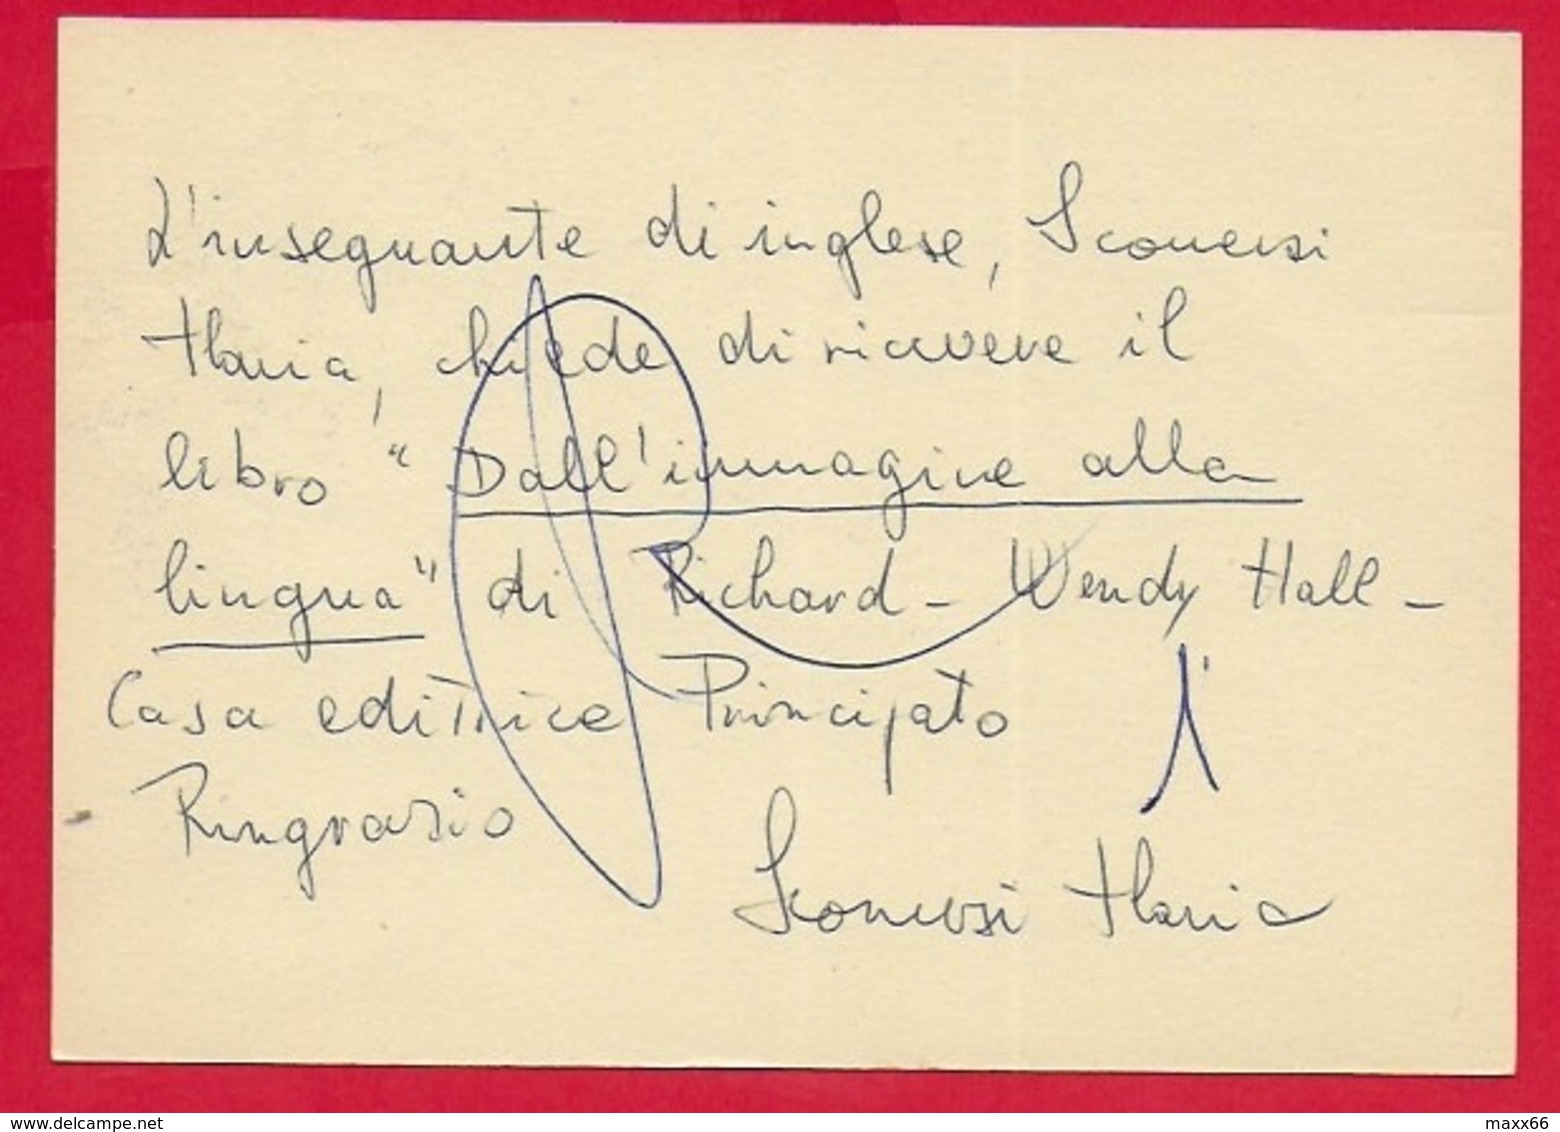 L'insegnante di inglese, Sconersi
Ilaria, chiede di ricevere il
libro "Dall'immagine alla
lingua" di Richard - Wendy Hall -
Casa editrice Principato
Ringrazio
Sconersi Ilaria
www.delcampe.net
maxx66